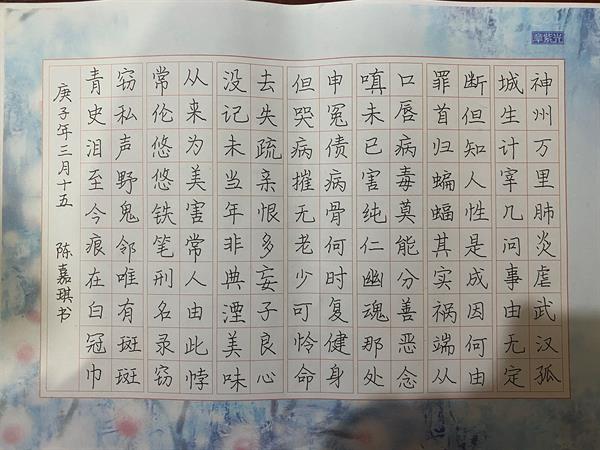 章紫光
神州万里肺炎虐武汉孤
城生计宰几问事由无定
断但知人性是成因何由
罪首归蝙蝠其实祸端从
口唇病毒莫能分善恶念
嗔未已害纯仁幽魂那处
申冤债病骨何时复健身
但哭病摧无老少可怜命
去失疏亲恨多妄子良心
没记未当年非典湮美味
从来为美害常人由此悖
常伦悠悠铁笔刑名录窃
窃私声野鬼邻唯有斑斑
青史泪至今痕在白冠巾
庚子年三月十五 陈嘉琪书